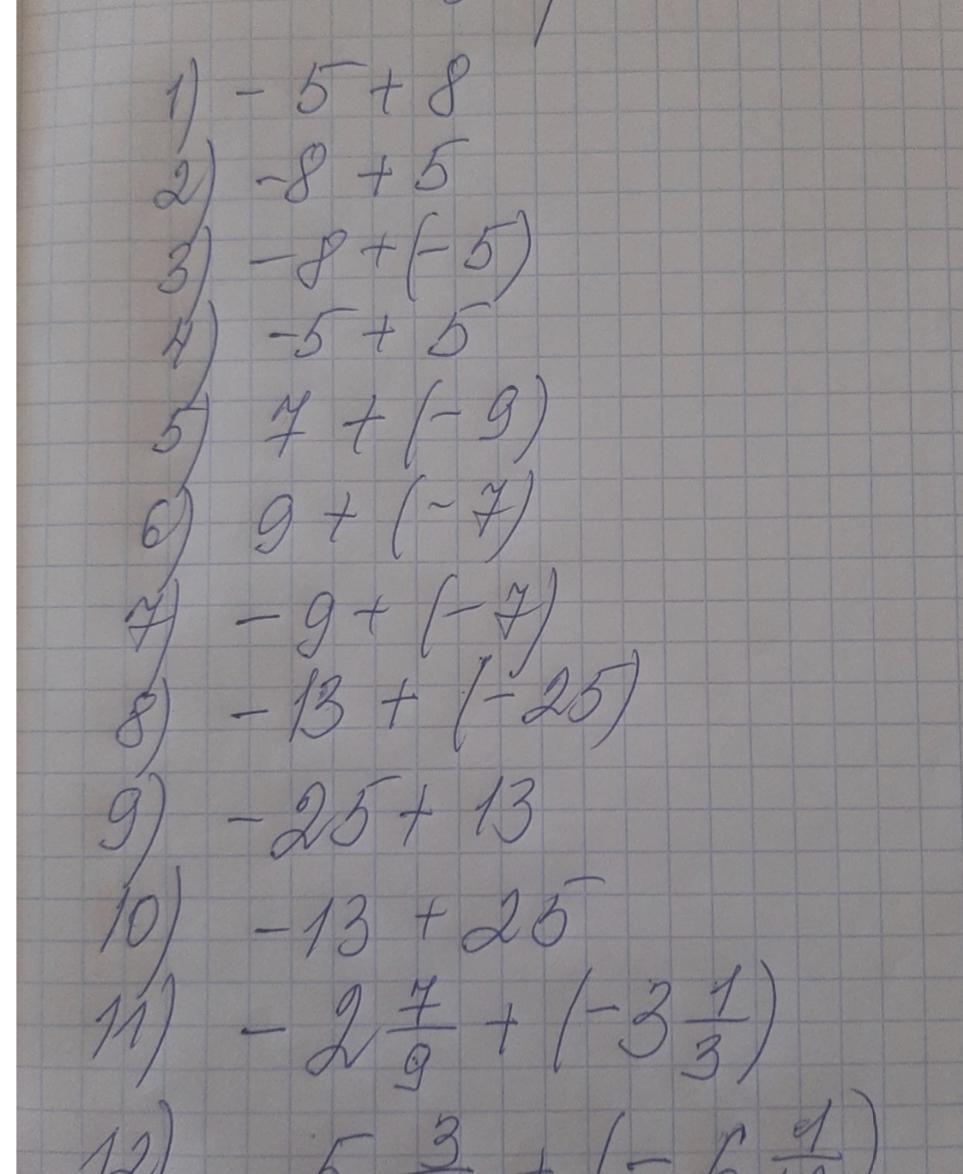 1) - 5 + 8
2) -8 + 5
3) -8 + (-5)
4) -5 + 5
5) 7 + (-9)
6) 9 + (-7)
7) -9 + (-7)
8) -13 + (-25)
9) -25 + 13
10) -13 + 25
11) -2 7/9 + (-3 1/3)
12)